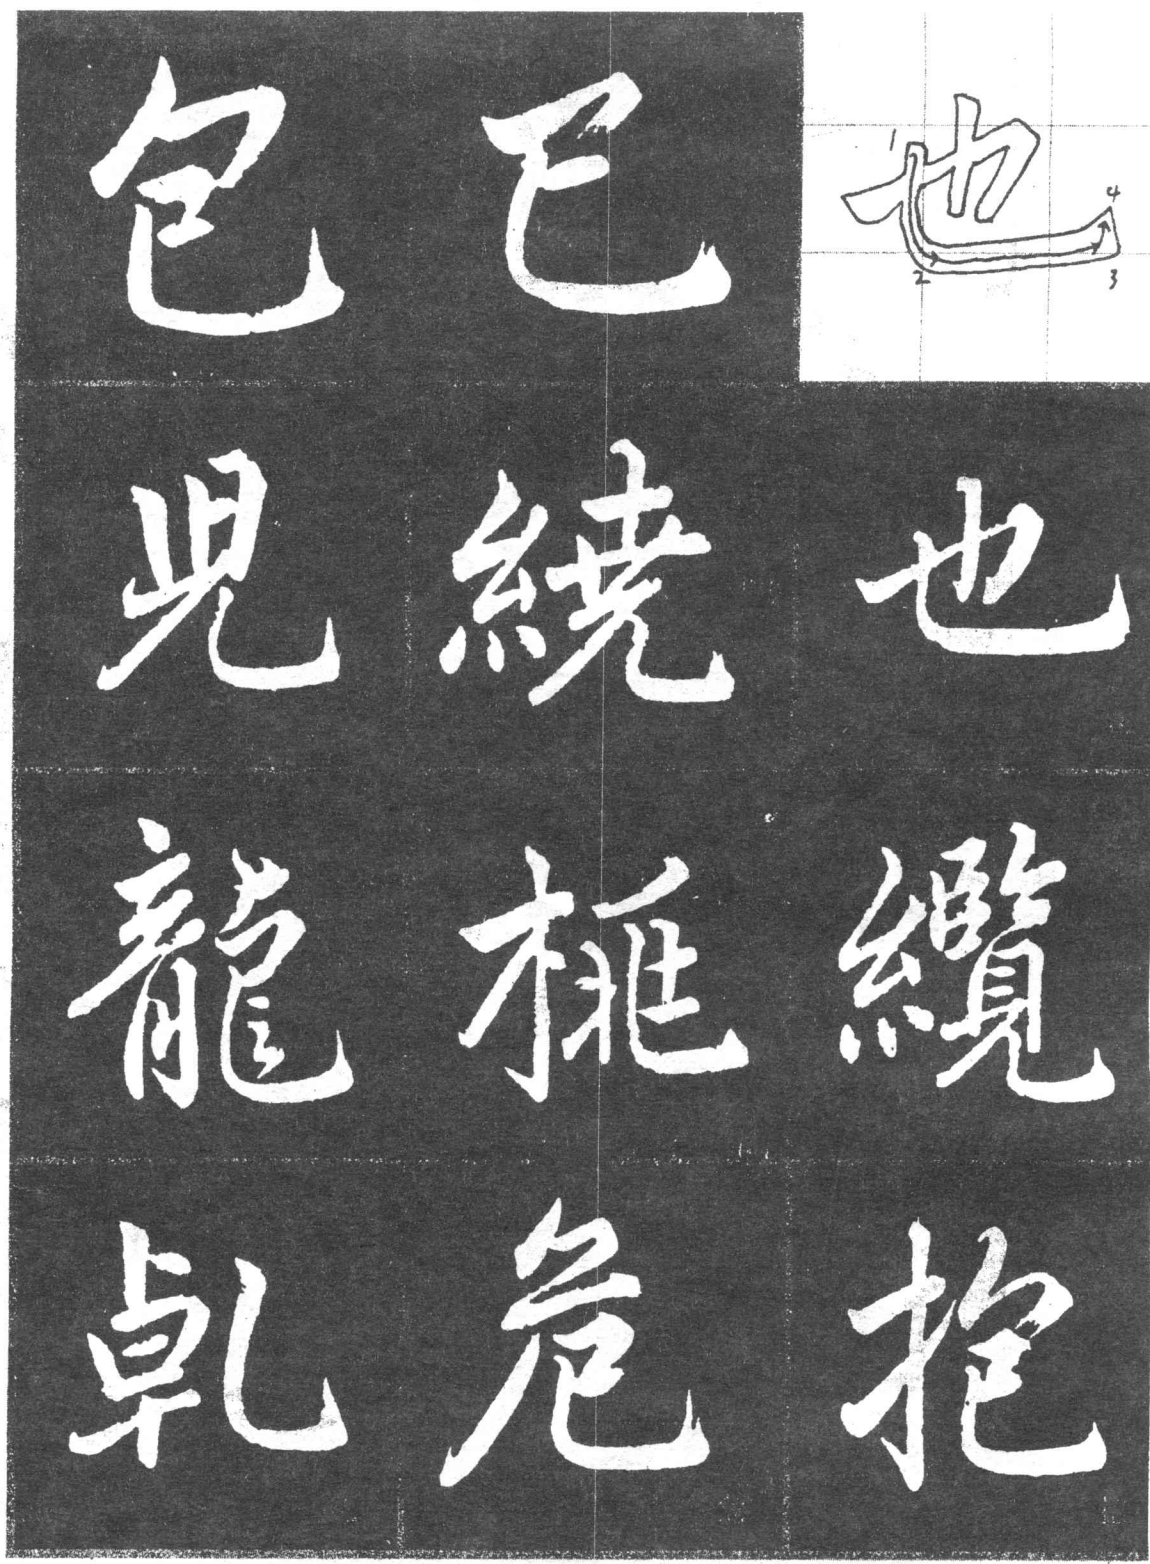 也 1 2 3 4
也纜抱
已繞危
包兒龍乹